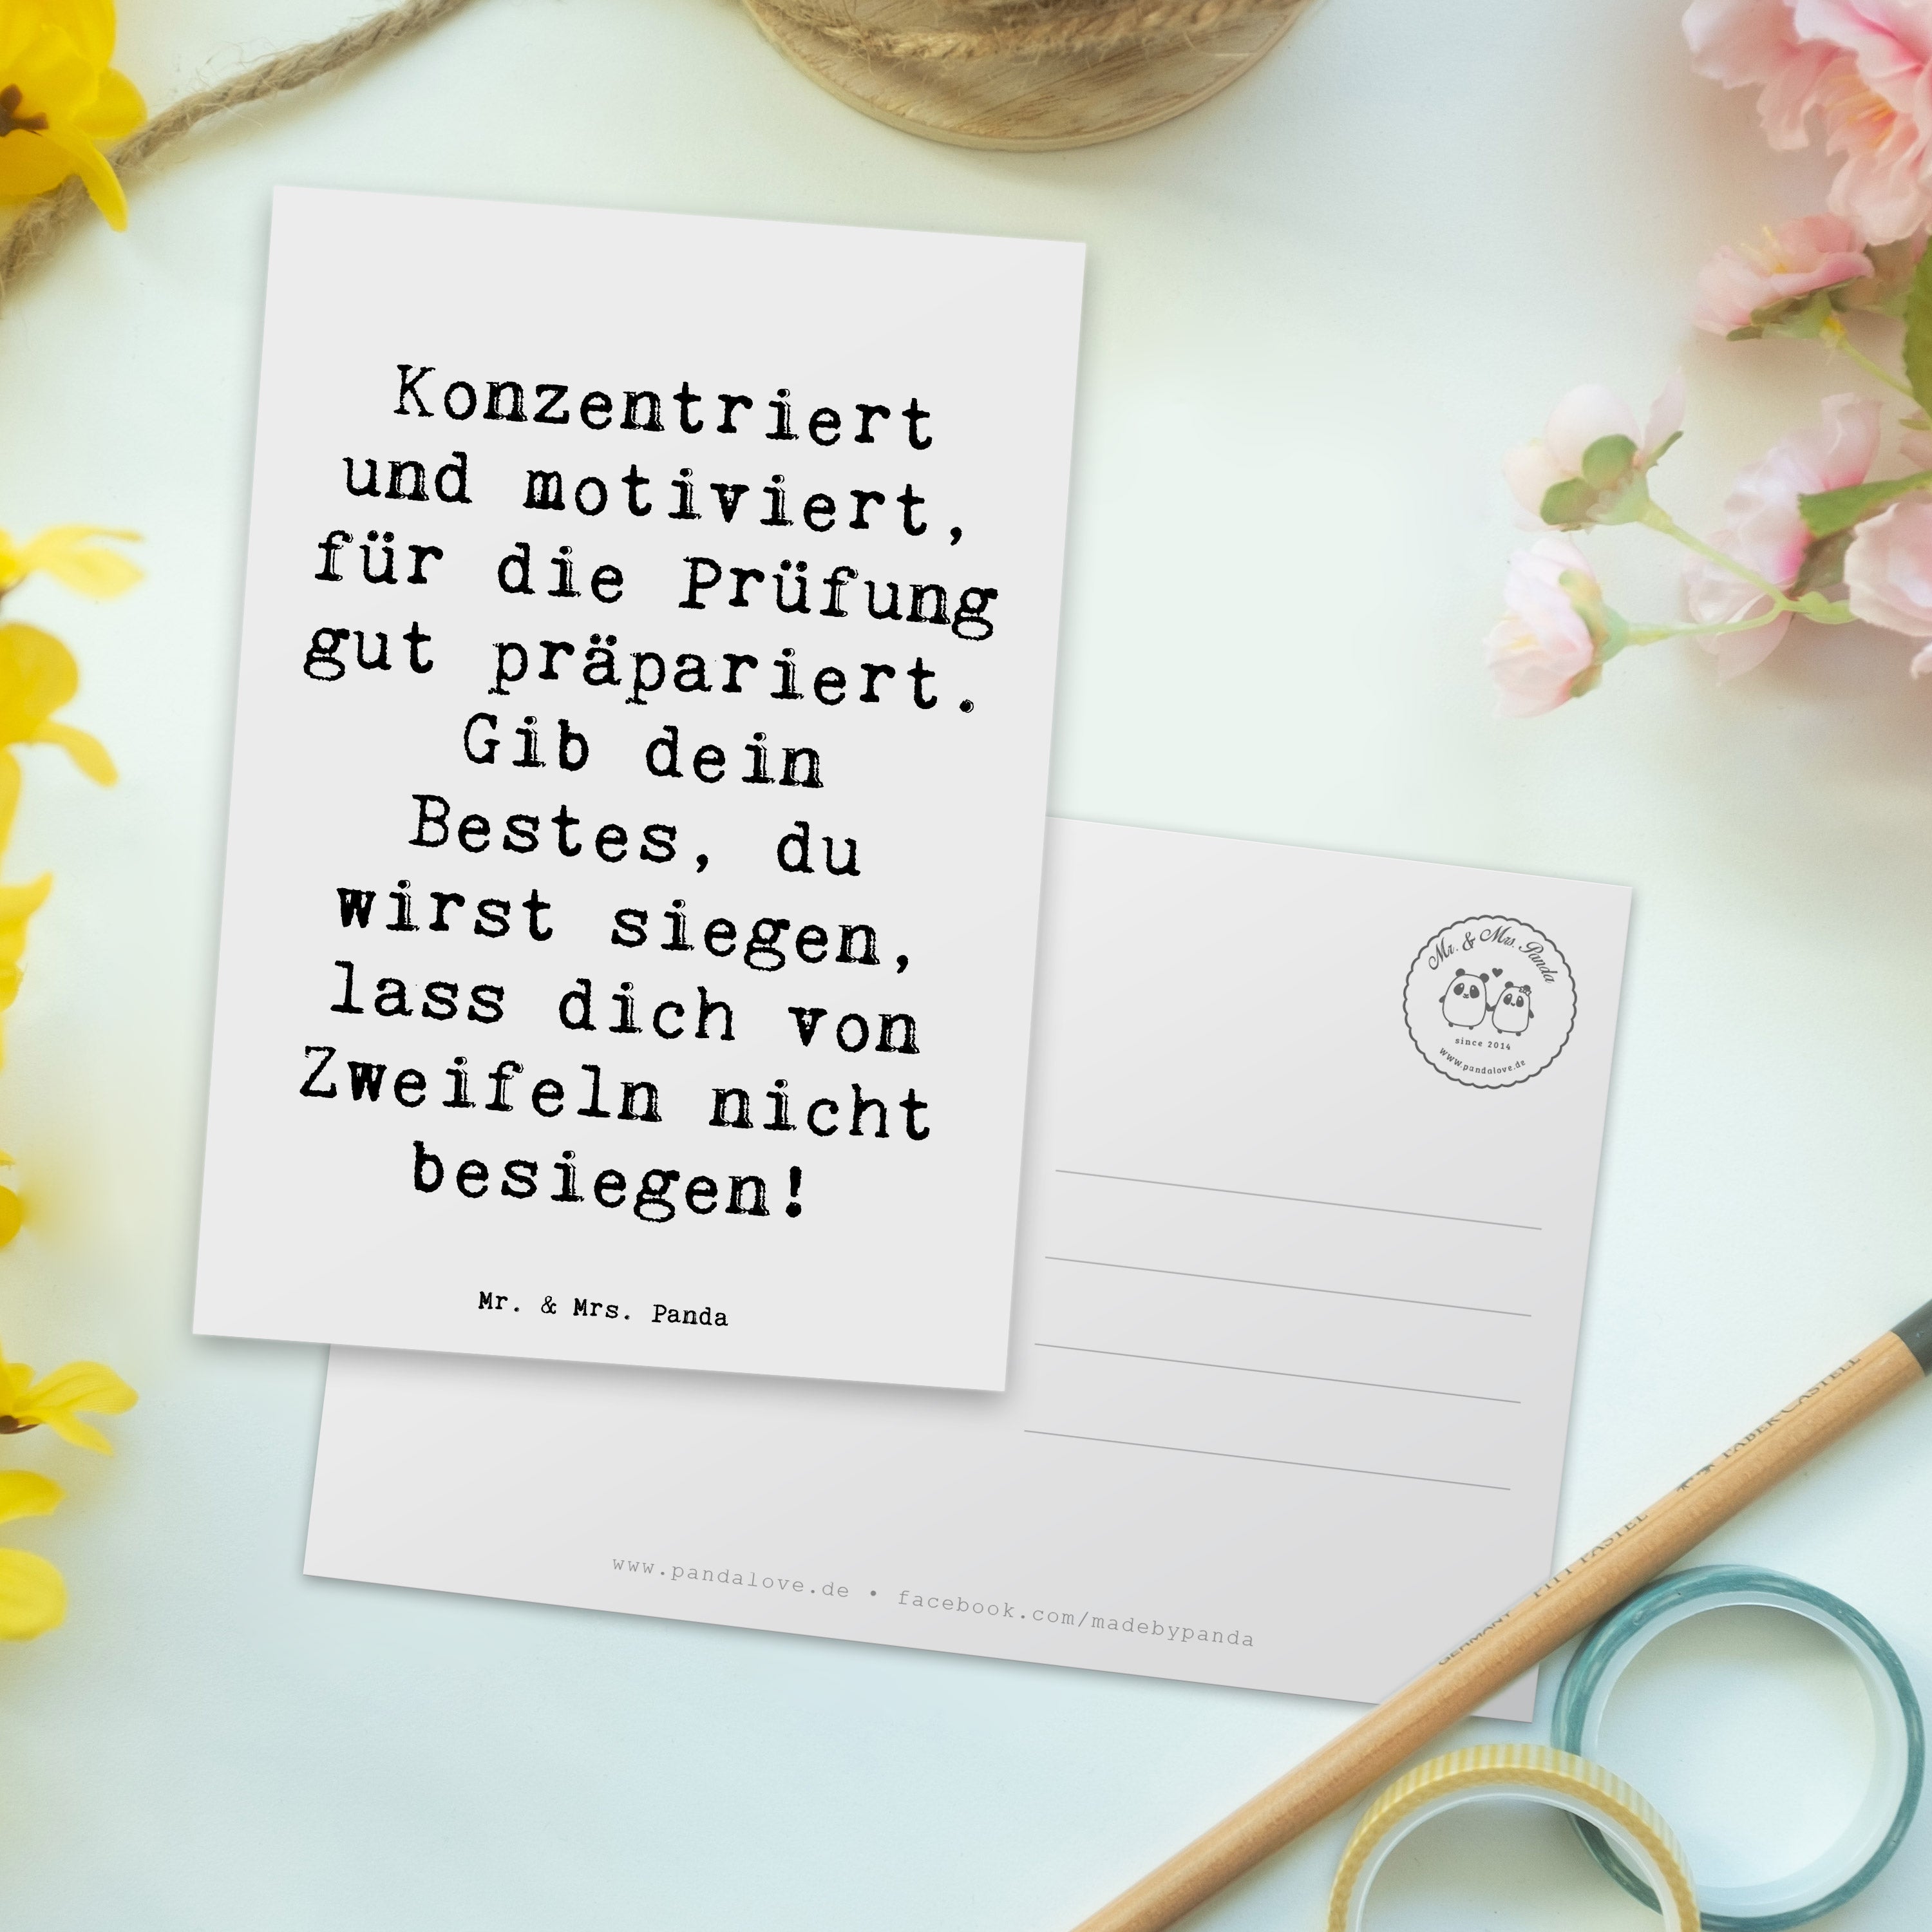 Konzentriert
und motiviert,
für die Prüfung
gut präpariert.
Gib dein
Bestes, du
wirst siegen,
lass dich von
Zweifeln nicht
besiegen!
Mr. & Mrs. Panda
Mr. & Mrs. Panda
since 2014
www.pandalove.de
www.pandalove.de • facebook.com/madebypanda
GERMANY PITT PASTEL FABER-CASTELL